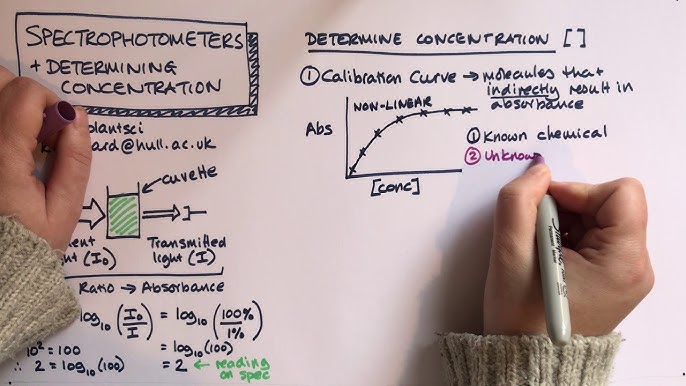 SPECTROPHOTOMETERS
+ DETERMINING
CONCENTRATION
plantsci
ard@hull.ac.uk
cuvette
Transmitted
light (I₀) light (I)
Ratio → Absorbance
log₁₀ (I₀/I) = log₁₀ (100%/1%)
10² = 100 = log₁₀(100)
∴ 2 = log₁₀(100) = 2 ← reading
on spec
DETERMINE CONCENTRATION [ ]
① Calibration Curve → molecules that
indirectly result in
absorbance
NON-LINEAR
Abs
[conc]
① Known chemical
② Unknow